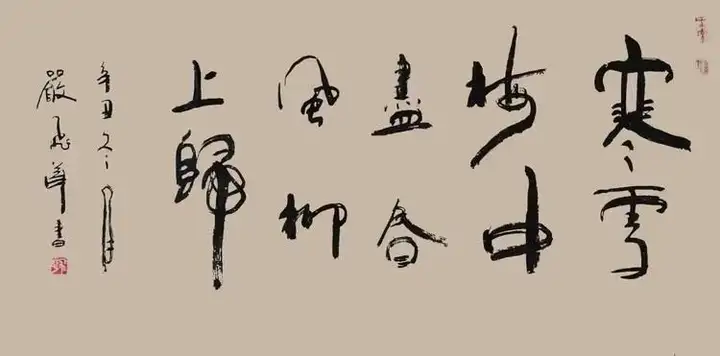 寒雪
梅中
盡春
風柳
上歸
辛丑冬月
嚴飛書